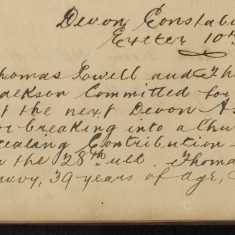 Devon Constabu
Exeter 10th
homas Lowell and Th
ackson Committed for
t the next Devon As
or breaking into a Chu
ealing Contribution
n the 28th ult. Thomas
avvy, 39 years of age,